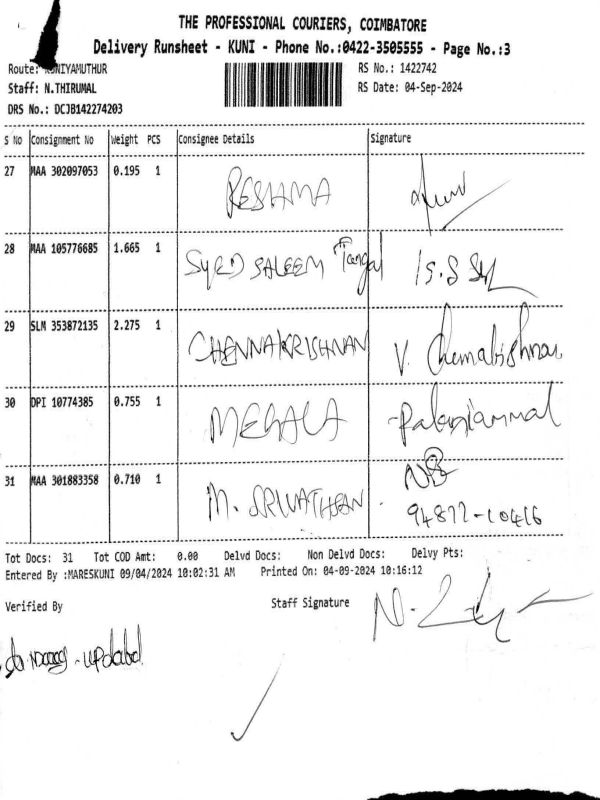 THE PROFESSIONAL COURIERS, COIMBATORE
Delivery Runsheet - KUNI - Phone No.:0422-3505555 - Page No.:3
Route: KUNIYAMUTHUR RS No.: 1422742
Staff: N.THIRUMAL RS Date: 04-Sep-2024
DRS No.: DCJB142274203
S No Consignment No Weight PCS Consignee Details Signature
27 MAA 302097053 0.195 1 RESHMA
28 MAA 105776685 1.665 1 SYED SALEEM Tangal
29 SLM 353872135 2.275 1 CHENNAKRISHNAN V. Chennakrishnan
30 DPI 10774385 0.755 1 MEGALA Palaniammal
31 MAA 301883358 0.710 1 M. SRIVATHSAN
94877-10416
Tot Docs: 31 Tot COD Amt: 0.00 Delvd Docs: Non Delvd Docs: Delvy Pts:
Entered By :MARESKUNI 09/04/2024 10:02:31 AM Printed On: 04-09-2024 10:16:12
Verified By Staff Signature
updated